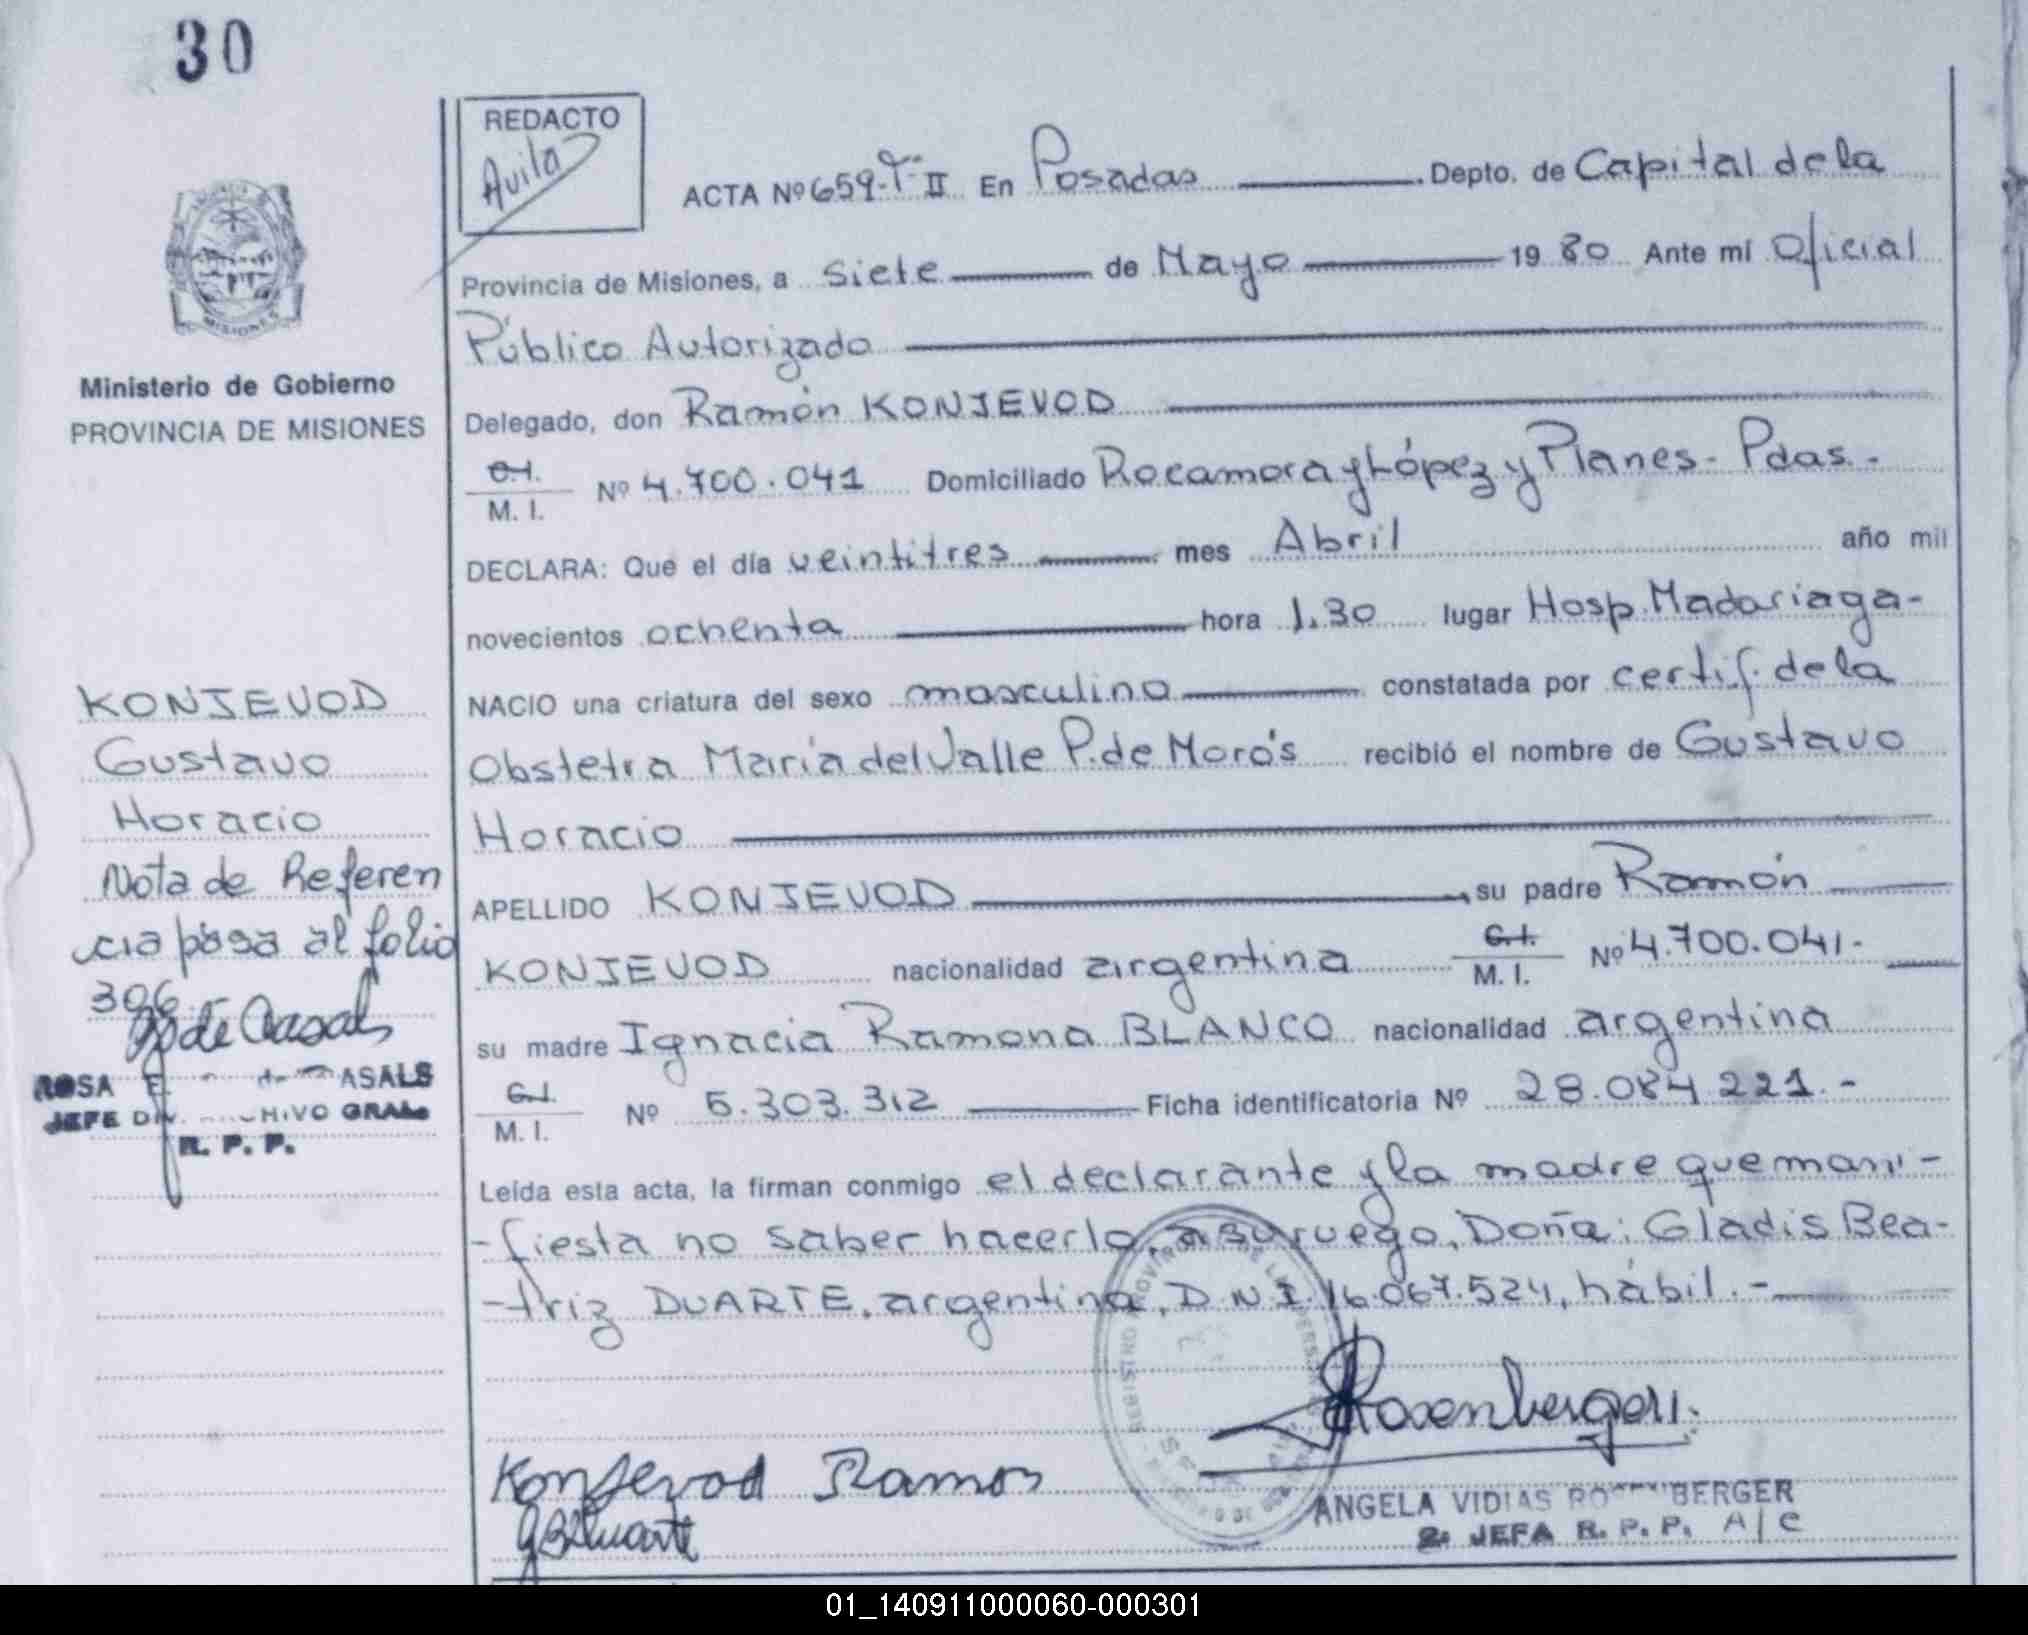 30
REDACTO
Avila
ACTA Nº 659-Tº II En Posadas Depto. de Capital de la
Provincia de Misiones, a siete de Mayo 1980 Ante mí Oficial
Público Autorizado
Delegado, don Ramón KONJEVOD
C.I.
M. I. Nº 4.700.041 Domiciliado Rocamora y López y Planes - Pdas. -
DECLARA: Que el día veintitres mes Abril año mil
novecientos ochenta hora 1.30 lugar Hosp. Madariaga -
NACIO una criatura del sexo masculino constatada por certif. de la
Obstetra María del Valle P. de Morós recibió el nombre de Gustavo
Horacio
APELLIDO KONJEVOD, su padre Ramón
KONJEVOD nacionalidad argentina C.I. M. I. Nº 4.700.041.-
su madre Ignacia Ramona BLANCO nacionalidad argentina
C.I.
M. I. Nº 5.303.312 Ficha identificatoria Nº 28.084.221.-
Leída esta acta, la firman conmigo el declarante y la madre que mani-
-fiesta no saber hacerlo, a su ruego, Doña: Gladis Bea-
-triz DUARTE, argentina, D.N.I. 16.067.524, hábil.-
Konjevod Ramon
GBDuarte
Rosenberger
ANGELA VIDIAS BERGER
2a JEFA R. P. P. A/C
MISIONES
Ministerio de Gobierno
PROVINCIA DE MISIONES
KONJEVOD
Gustavo
Horacio
Nota de Referen
cia pasa al folio
396
de Casals
ROSA E. CASALS
JEFE DIV. ARCHIVO GRAL.
R. P. P.
01_140911000060-000301